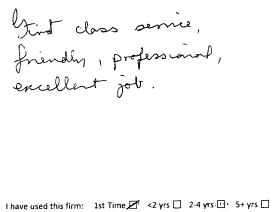 First class service,
friendly, professional,
excellent job.
I have used this firm: 1st Time ☑ <2 yrs ☐ 2-4 yrs ☐ 5+ yrs ☐